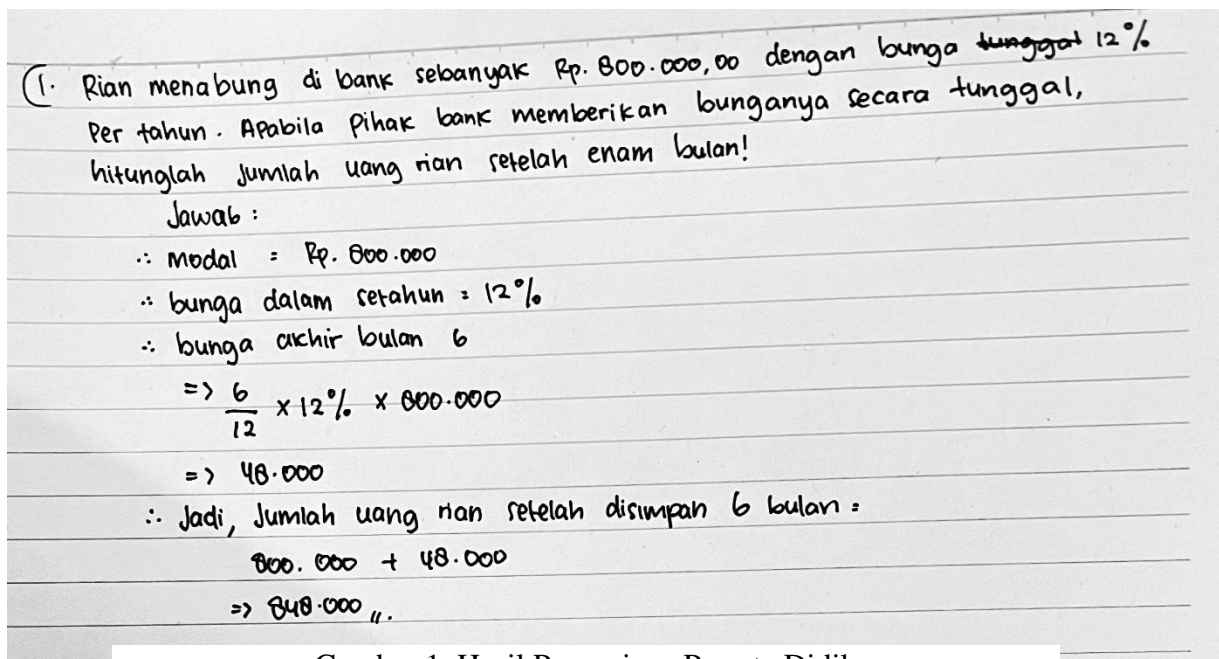 1. Rian menabung di bank sebanyak Rp. 800.000,00 dengan bunga tunggal 12%
Per tahun. Apabila Pihak bank memberikan bunganya secara tunggal,
hitunglah Jumlah uang rian setelah enam bulan!
Jawab :
∴ modal = Rp. 800.000
∴ bunga dalam setahun = 12%
∴ bunga akhir bulan 6
=> 6/12 x 12% x 800.000
=> 48.000
∴ Jadi, Jumlah uang rian setelah disimpan 6 bulan =
800.000 + 48.000
=> 848.000 ,,.